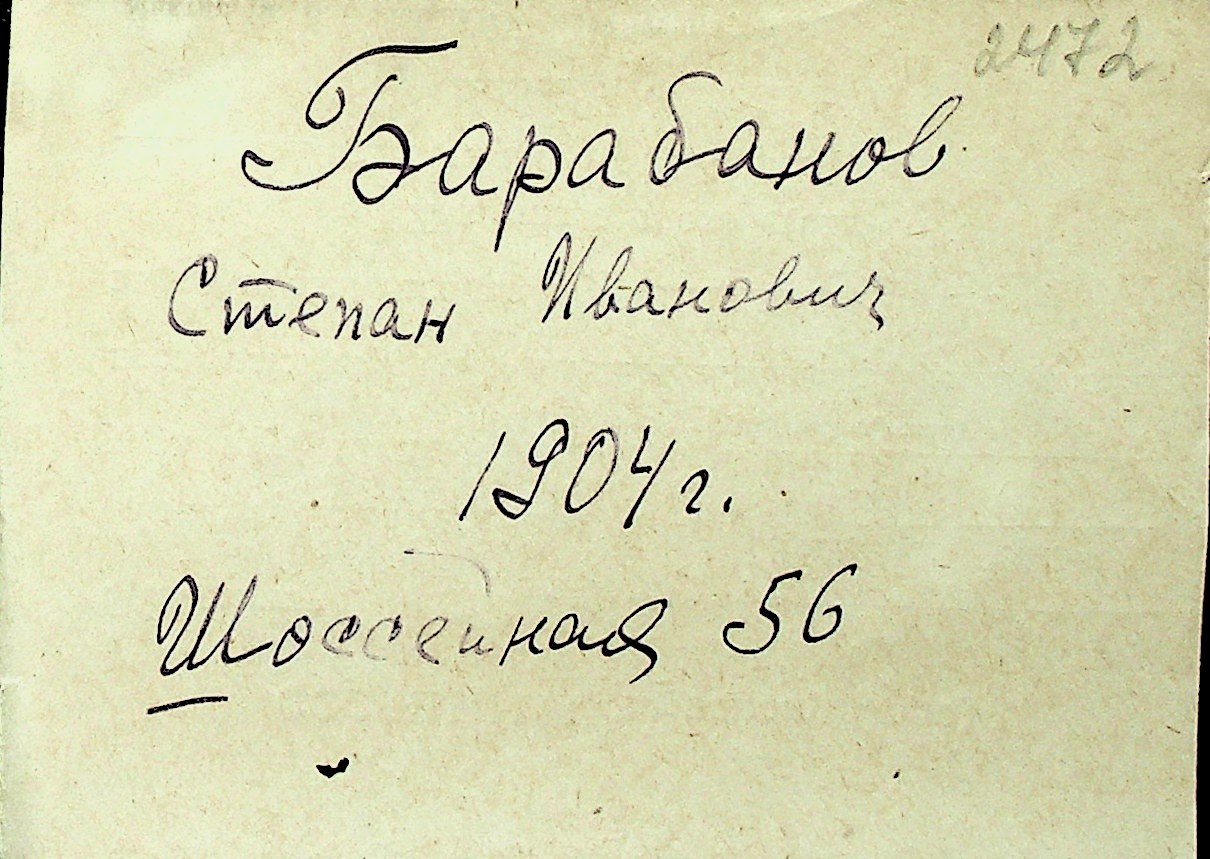 2472
Барабанов
Степан Иванович
1904 г.
Шоссейная 56